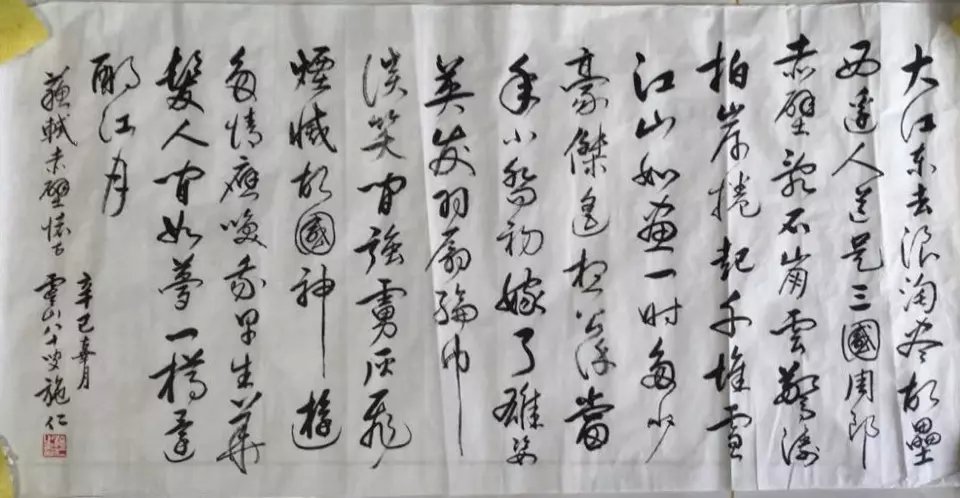 大江东去浪淘尽故壘
西邊人道是三國周郎
赤壁亂石崩雲驚濤
拍岸捲起千堆雪
江山如畫一时多少
豪傑遥想公瑾當
年小喬初嫁了雄姿
英发羽扇綸巾
淡笑间強虜灰飛
煙滅故國神遊
多情應喚我早生華
髮人间如夢一樽還
酹江月
蘇軾赤壁懷古
辛巳春月
雲山八十叟施仁